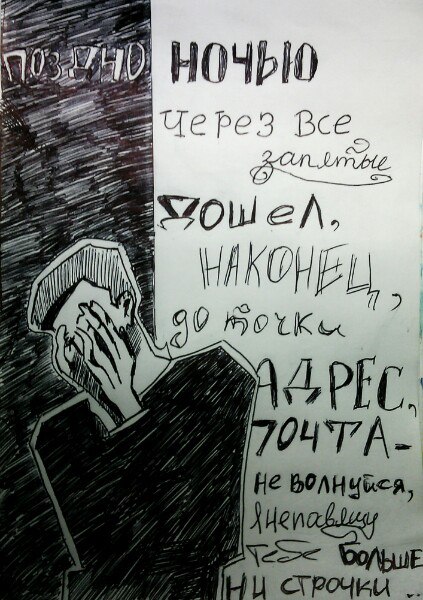 ПОЗДНО НОЧЬЮ
Через все
запятые
Дошел,
НАКОНЕЦ,
до точки
АДРЕС,
ПОЧТА-
Не волнуйся,
Я ненапишу
тебе больше
ни строчки...